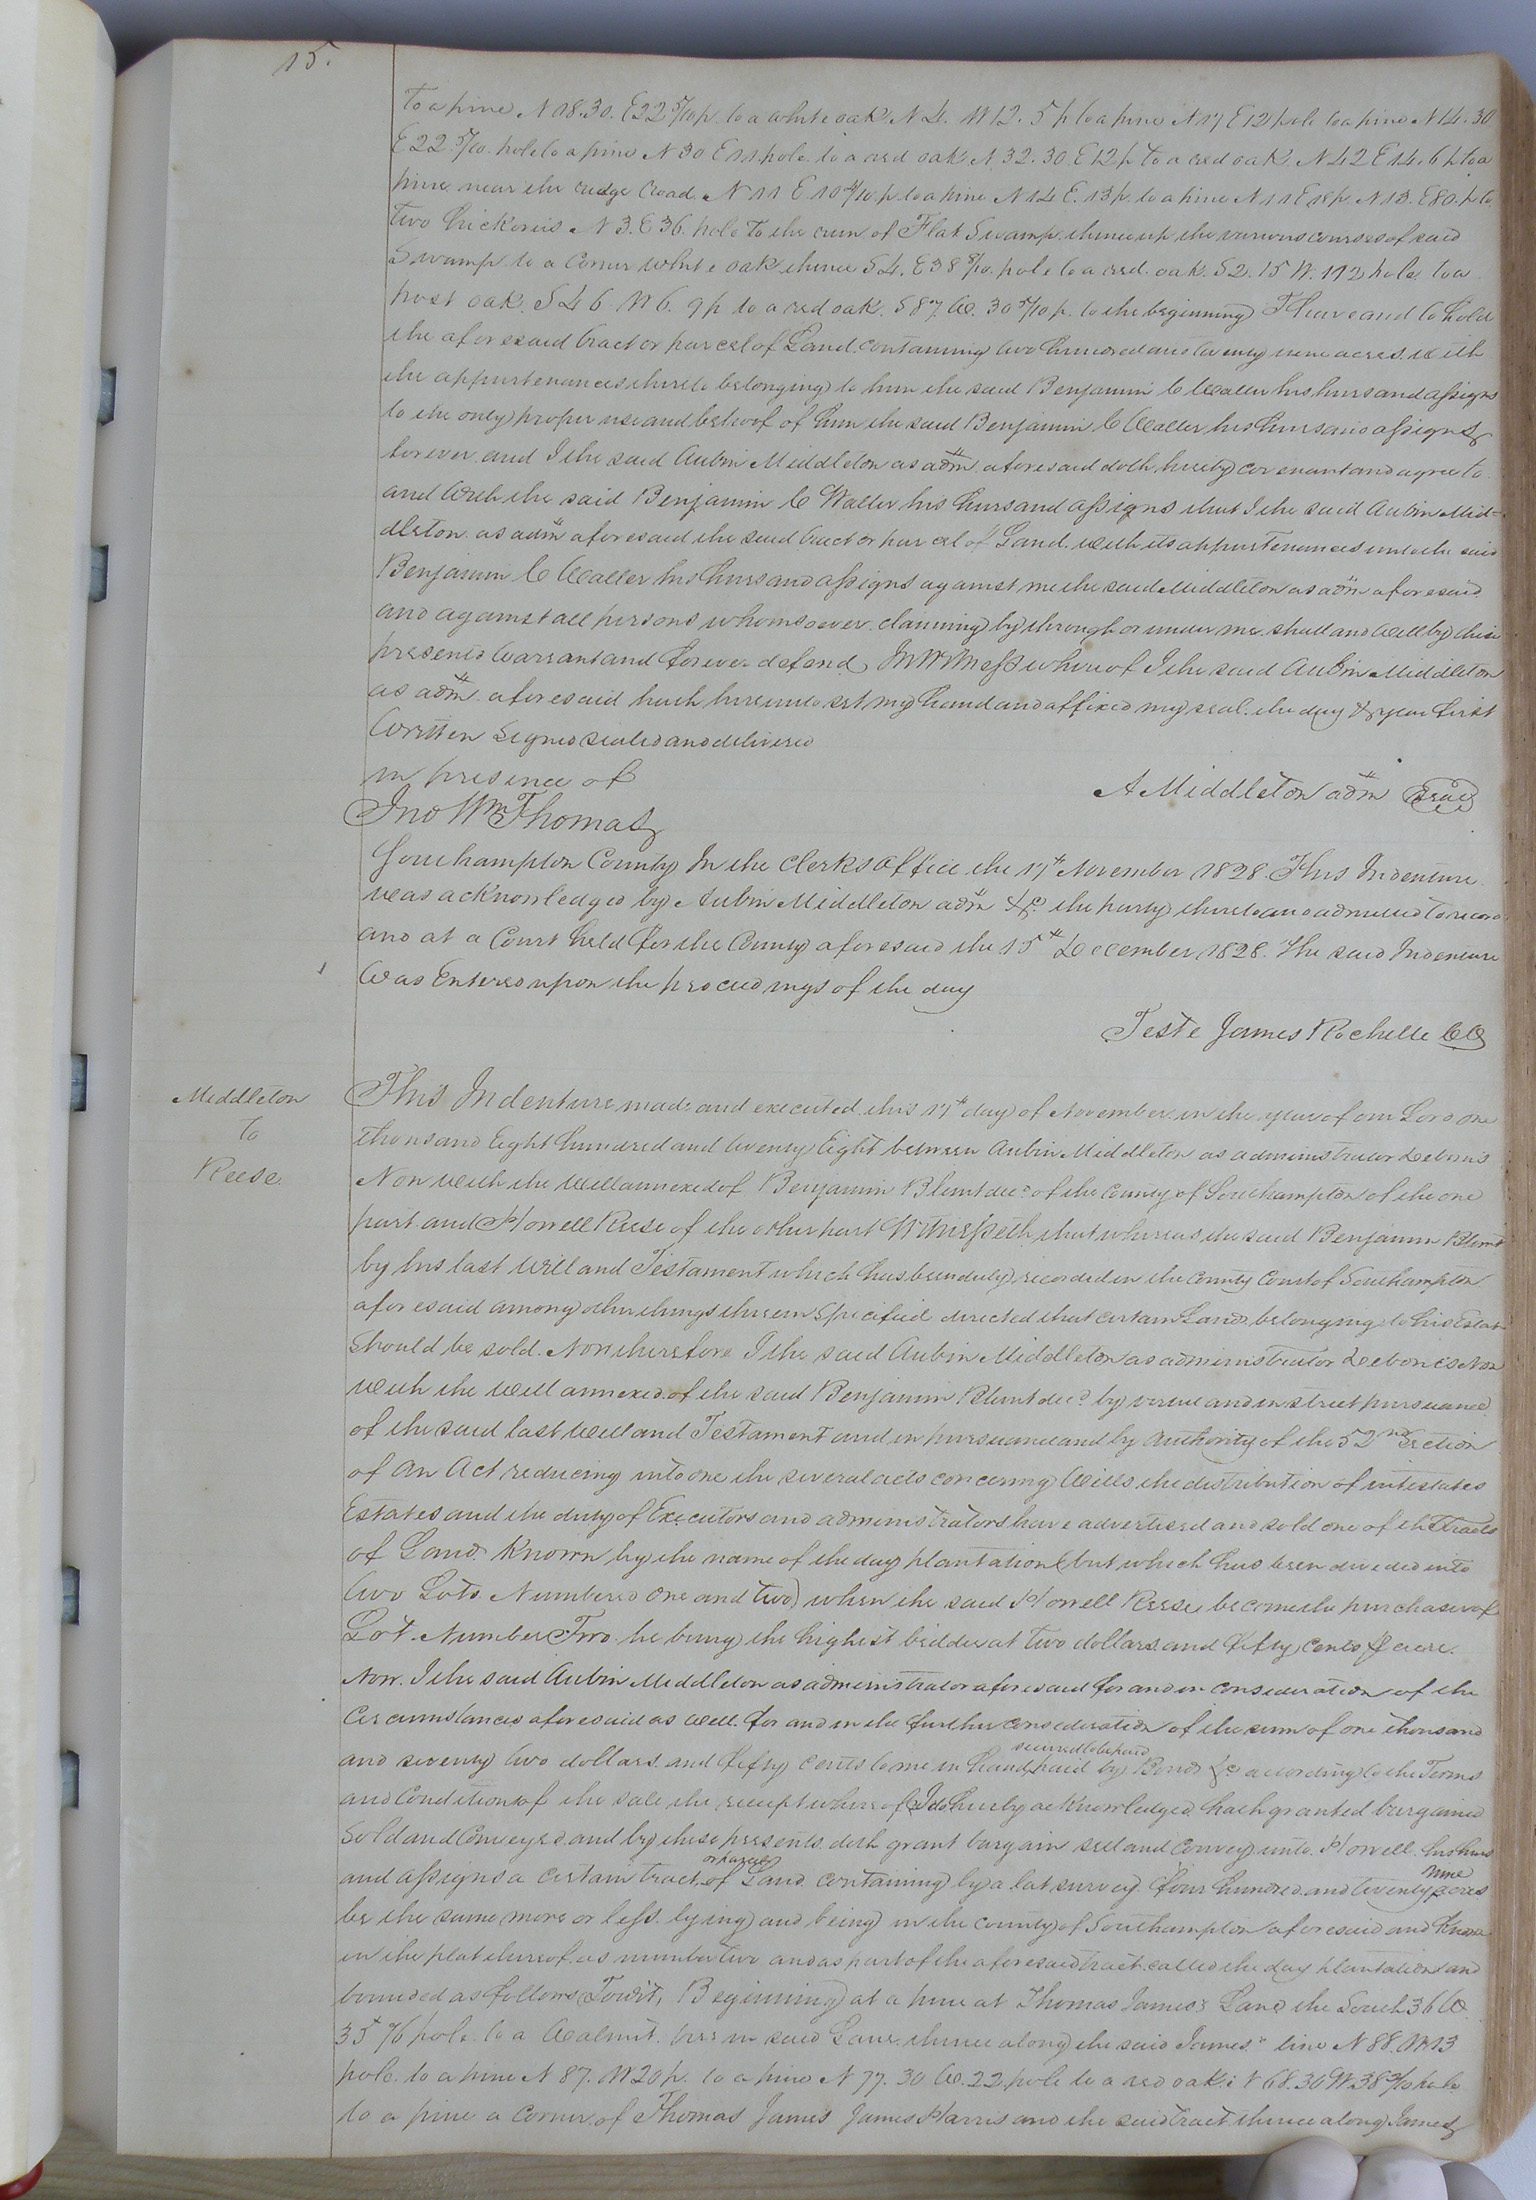 15.
to a pine N 18.30. E 22 5/10 p. to a white oak N 4. W 12. 5 p to a pine N 17 E 12 pole to a pine N 14. 30
E 22 5/10. pole to a pine N 30 E 11. pole to a red oak N. 32. 30. E 12 p to a red oak. N 42 E 14. 6 p to a
pine near the ridge road. N 11 E 10 4/10 p. to a pine N 14 E. 13 p. to a pine N 11 E 18 p. N 13. E 80. p to
two hickories N 3. E 36. pole to the run of Flat Swamp. thence up the various courses of said
Swamp to a Corner white oak thence S 4. E 38 8/10. pole to a red oak. S 2. 15 W. 172 pole to a
post oak. S 46 W 6. 9 p to a red oak. S 87. W. 30 5/10 p. to the beginning To have and to hold
the aforesaid tract or parcel of Land. containing two hundred and twenty nine acres. with
the appurtenances thereto belonging to him the said Benjamin C Waller his heirs and assigns
to the only proper use and behoof of him the said Benjamin C Waller his heirs and assigns
forever and I the said Aubin Middleton as adm aforesaid doth hereby covenant and agree to
and with the said Benjamin C Waller his heirs and assigns that I the said Aubin Mid=
dleton as adm aforesaid the said tract or parcel of Land. with its appurtenances unto the said
Benjamin C Waller his heirs and assigns against me the said Middleton as adm aforesaid
and against all persons whomsoever. claiming by through or under me. shall and will by these
presents warrant and forever defend. In Witness whereof I the said Aubin Middleton
as adm. aforesaid hath hereunto set my hand and affixed my seal. the day & year first
Written Signed sealed and delivered
in presence of
A Middleton adm Seal
Jno Wm Thomas
Southampton County In the Clerks Office the 17th November 1828. This Indenture
was acknowledged by Aubin Middleton adm &c. the party thereto and admitted to record
and at a Court held for the County aforesaid the 15th December 1828. The said Indenture
Was Entered upon the proceedings of the day
Teste James Rochelle CC
Middleton
To
Reese.
This Indenture made and executed this 17th day of November in the year of our Lord one
thousand Eight hundred and twenty Eight between Aubin Middleton as administrator Debonis
Non with the Will annexed of Benjamin Blunt decd of the County of Southampton of the one
part and Howell Reese of the other part Witnesseth that whereas the said Benjamin Blunt
by his last Will and Testament which has been duly recorded in the County Court of Southampton
aforesaid among other things therein Specified directed that certain Lands belonging to his Estate
Should be sold. Now therefore I the said Aubin Middleton as administrator Debonis Non
with the Will annexed. of the said Benjamin Blunt decd by virtue and in strict pursuance
of the said last Will and Testament and in pursuance and by Authority of the 52nd Section
of an Act reducing into one the several acts concerning Wills the distribution of intestates
Estates and the duty of Executors and administrators have advertised and sold one of the Tracts
of Land Known by the name of the day plantation (but which has been divided into
two Lots Numbered one and two) when the said Howell Reese became the purchaser of
Lot Number Two he being the highest bidder at two dollars. and fifty cents ⅌ acre.
Now. I the said Aubin Middleton as administrator aforesaid for and in consideration of the
Circumstances aforesaid as well. for and in the further consideration of the sum of one thousand
and seventy two dollars. and fifty cents to me in hand secured to be paid paid by Bond &c according to the Terms
and Conditions of the sale the receipt whereof I do hereby acknowledged hath granted bargained
Sold and Conveyed. and by these presents. doth grant bargain sell and convey unto. Howell his heirs
and assigns a certain tract or parcel of Land. containing by a lat survey. four hundred. and twenty nine acres
be the same more or less. lying and being in the county of Southampton aforesaid and known
in the plat thereof as number two and as part of the aforesaid tract. called the day plantation and
bounded as follows Towit, Beginning at a pine at Thomas James's Land the South 36 W
35 pole to a Walnut. tree in said Lane. thence along the said James's line N 88. W 13
pole. to a pine N 87. W 20 p. to a pine N 77. 30 W. 22 pole to a red oak: N 68. 30 W. 38 pole
to a pine a corner of Thomas James James Harris and the said tract thence along James